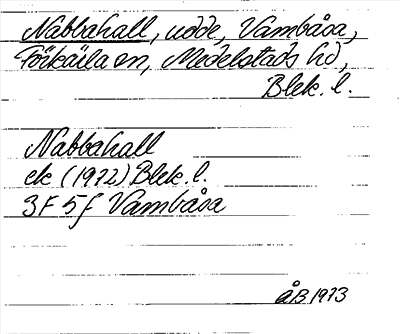 Nabbahall, udde, Vambåsa,
Förkärla sn, Medelstads hd,
Blek. l.
Nabbahall
ek (1972) Blek. l.
3F 5f Vambåsa
ÅB 1973